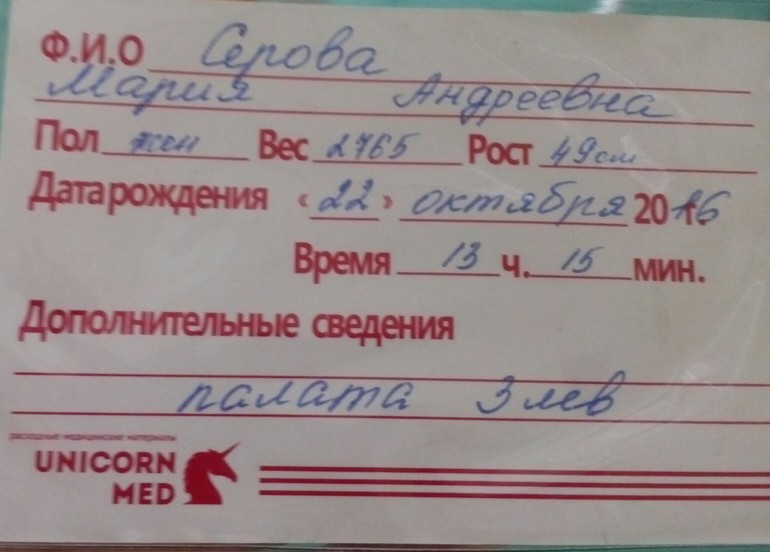 Ф.И.О Серова
Мария Андреевна
Пол жен Вес 2765 Рост 49см
Дата рождения «22» октября 2016
Время 13 ч. 15 мин.
Дополнительные сведения
палата 3 лев
расходные медицинские материалы
UNICORN
MED